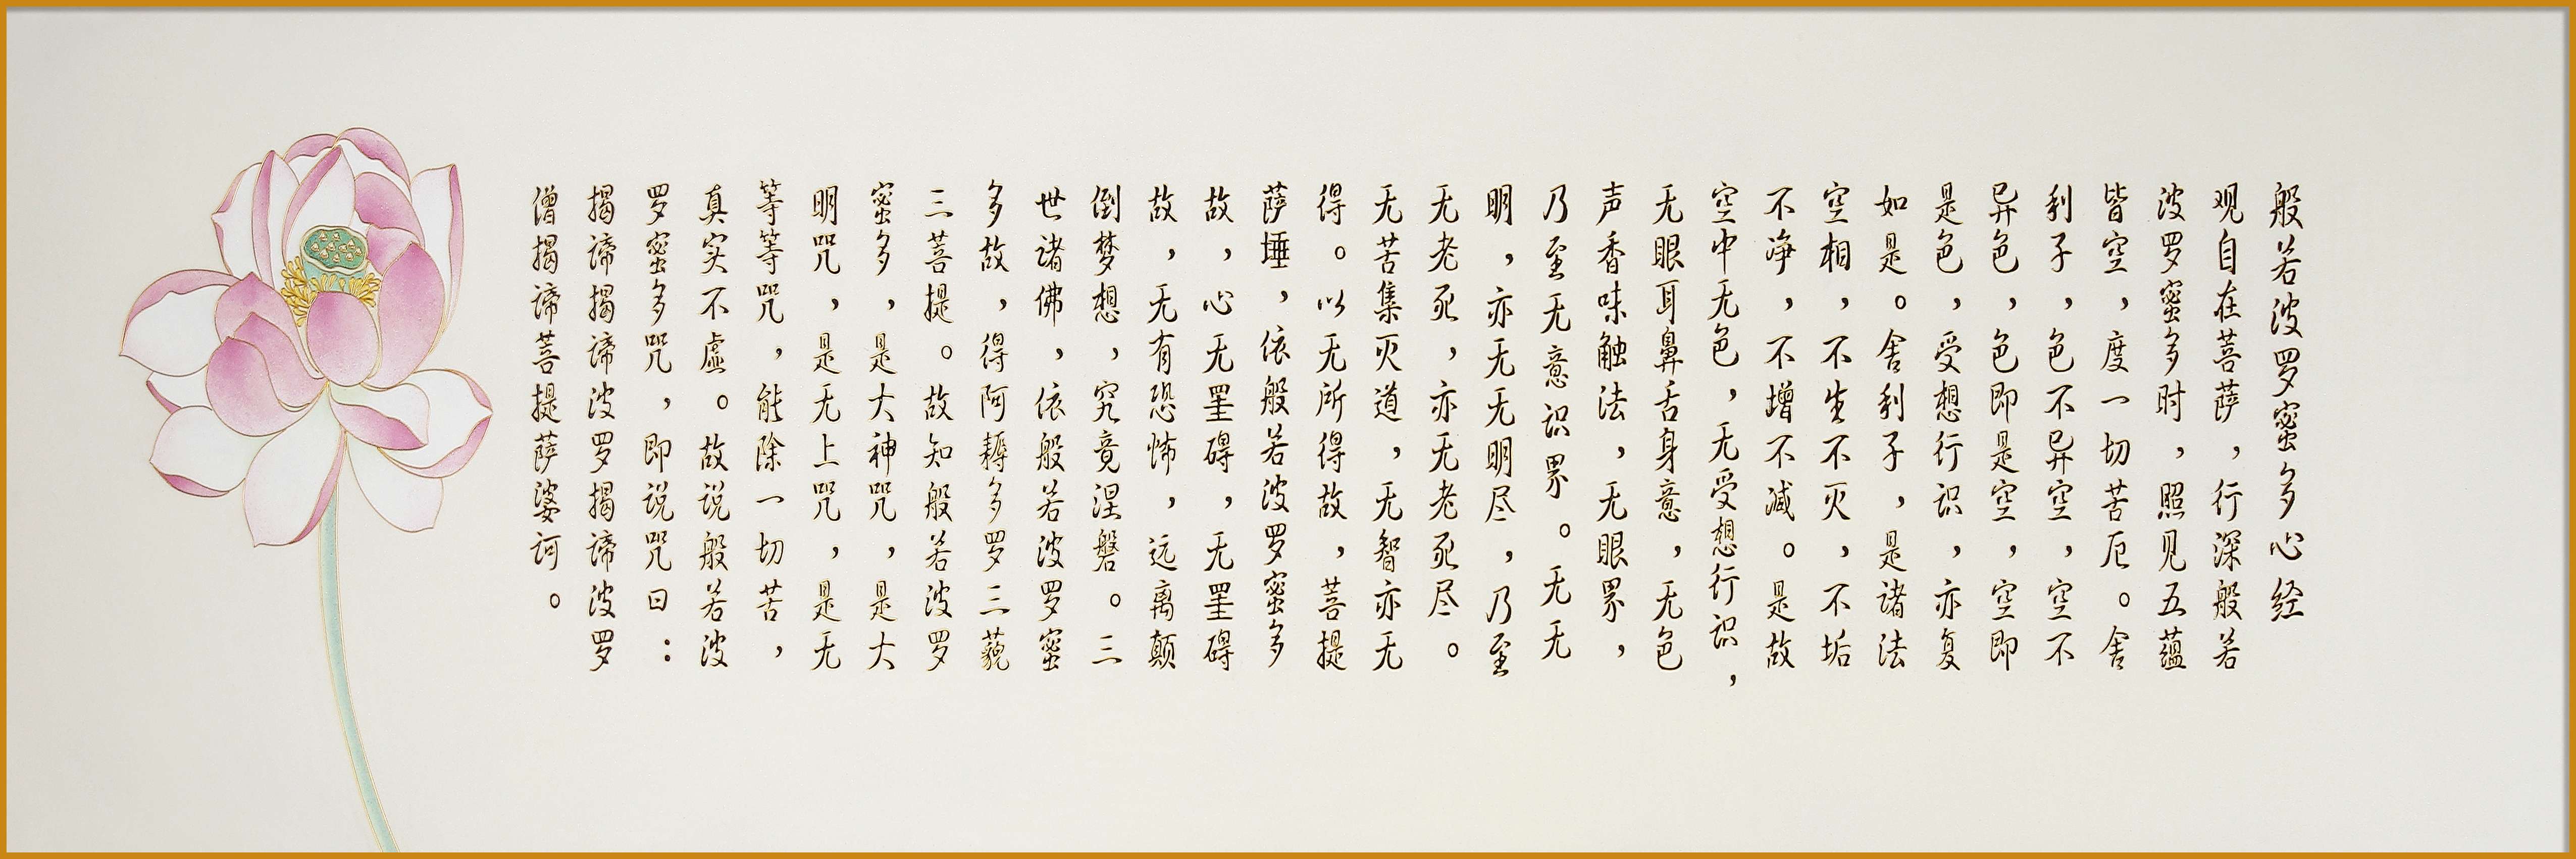 般若波罗蜜多心经
观自在菩萨，行深般若
波罗蜜多时，照见五蕴
皆空，度一切苦厄。舍
利子，色不异空，空不
异色，色即是空，空即
是色，受想行识，亦复
如是。舍利子，是诸法
空相，不生不灭，不垢
不净，不增不减。是故
空中无色，无受想行识，
无眼耳鼻舌身意，无色
声香味触法，无眼界，
乃至无意识界。无无
明，亦无无明尽，乃至
无老死，亦无老死尽。
无苦集灭道，无智亦无
得。以无所得故，菩提
萨埵，依般若波罗蜜多
故，心无罣碍，无罣碍
故，无有恐怖，远离颠
倒梦想，究竟涅磐。三
世诸佛，依般若波罗蜜
多故，得阿耨多罗三藐
三菩提。故知般若波罗
蜜多，是大神咒，是大
明咒，是无上咒，是无
等等咒，能除一切苦，
真实不虚。故说般若波
罗蜜多咒，即说咒曰：
揭谛揭谛波罗揭谛波罗
僧揭谛菩提萨婆诃。